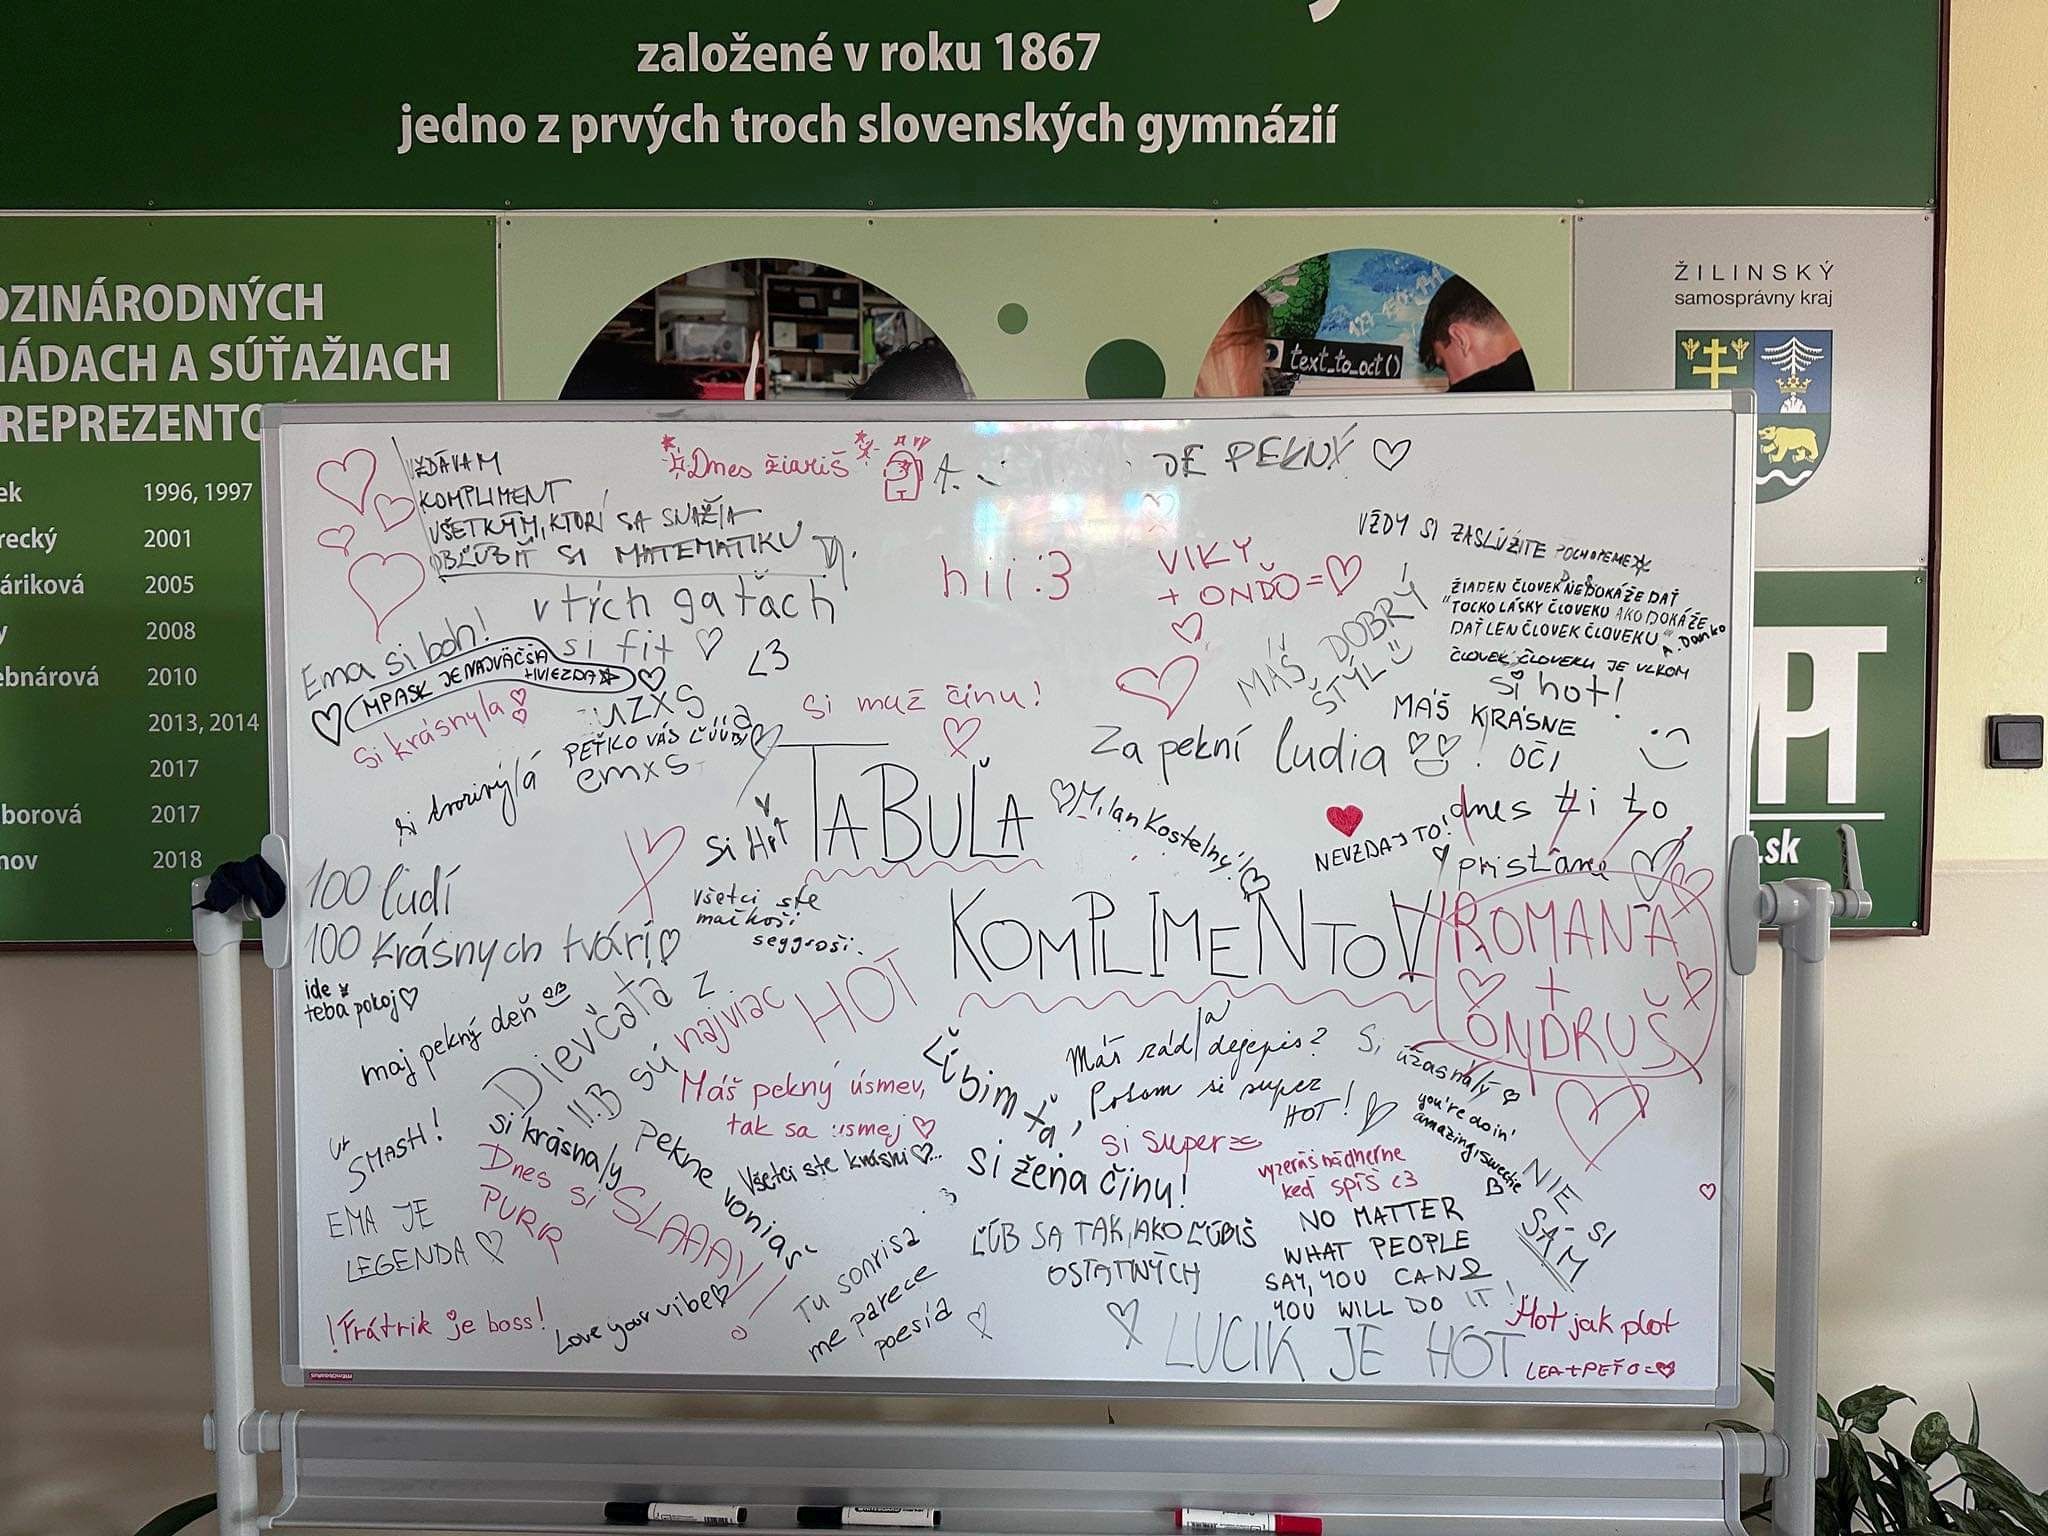 založené v roku 1867
jedno z prvých troch slovenských gymnázií
ŽILINSKÝ
samosprávny kraj
SÚŤAŽIACH
A
1996, 1997
2001
2005
2008
2010
2013, 2014
2017
2017
2018
text_to_oct()
.sk
VZDÁVAM
KOMPLIMENT
VŠETKÝM, KTORÍ SA SNAŽIA
OBĽÚBIŤ SI MATEMATIKU
Dnes žiariš
JE PEKNÝ
hii :3
VIKY
+ ONĎO =
VŽDY SI ZASLÚŽITE
ŽIADEN ČLOVEK NEDOKÁŽE DAŤ
"TOĽKO LÁSKY ČLOVEKU AKO DOKÁŽE
DAŤ LEN ČLOVEK ČLOVEKU" A. Danko
ČLOVEK ČLOVEKU JE VLKOM
v tých gaťách
si fit
<3
Ema si boh!
MPASK JE NAJVÄČŠIA
HVIEZDA
si krásny/a
MÁŠ DOBRÝ
ŠTÝL
si hot!
MÁŠ KRÁSNE
OČI
si muž činu!
Za pekní ludia
PEŤKO VÁS
emxs
si tvorivý/á
TABUĽA
KOMPLIMENTOV
SI HOT
Milan Kostelný
NEVZDAJ TO!
dnes ti to
pristane
100 ľudí
100 krásnych tvárí
všetci ste
mačkoši
seggroši.
ROMANA
+
ONDRUŠ
ide z
teba pokoj
maj pekný deň
Dievčatá z
II.B sú najviac HOT
Máš pekný úsmev,
tak sa usmej
Ľúbim ťa,
Máš rád/a dejepis?
Potom si super
HOT!
Si úžasná/ý
you're doin'
amazing, sweetie
SMASH!
si krásna/y
Dnes si SLAAAY!
PURR
Pekne voniaš
Všetci ste krásni...
si super
si žena činu!
vyzeráš nádherne
keď spíš <3
NIE SI
SÁM
EMA JE
LEGENDA
ĽÚB SA TAK, AKO ĽÚBIŠ
OSTATNÝCH
NO MATTER
WHAT PEOPLE
SAY, YOU CAN &
YOU WILL DO IT!
!Frátrik je boss!
Love your vibe
Tu sonrisa
me parece
poesía
LUCIK JE HOT
Hot jak plot
LEA+PEŤO=